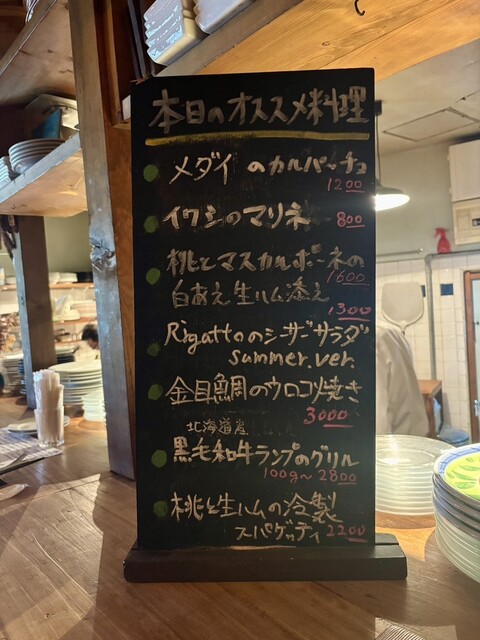 本日のオススメ料理
メダイ のカルパッチョ
1200
イワシのマリネ 800
桃とマスカルポーネの
1600
白あえ 生ハム添え
1300
Rigattoのシーザーサラダ
summer.ver.
金目鯛のウロコ焼き
3000
北海道産
黒毛和牛ランプのグリル
100g〜2800
桃と生ハムの冷製
スパゲッティ 2200